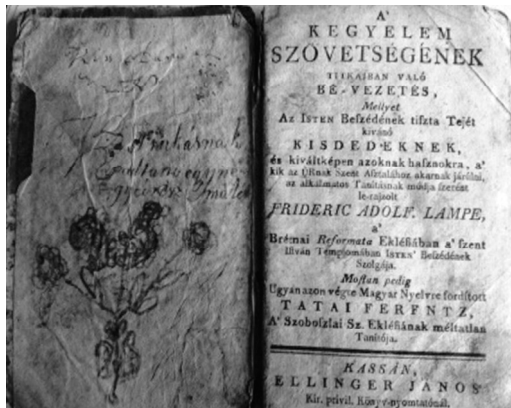 A'
KEGYELEM
SZÖVETSÉGÉNEK
TITKAIBAN VALÓ
BÉ-VEZETÉS,
Mellyet
Az ISTEN Beſzédének tiſzta Tejét
kivánó
KISDEDEKNEK,
és kiváltképen azoknak haſznokra, a'
kik az ÚRnak Szent Aſztalához akarnak járúlni,
az alkalmatos Tanításnak módja ſzerént
le-rajzolt
FRIDERIC ADOLF. LAMPE,
a'
Brémai Reformata Ekléſiában a' ſzent
Iſtván Templomában ISTEN' Beſzédének
Szolgája.
Moſtan pedig
Ugyan azon végre Magyar Nyelvre fordított
TATAI FERENTZ,
A' Szoboſzlai Sz. Ekléſiának méltatlan
Tanítója.
KASSÁN,
ELLINGER JÁNOS
Kir. privil. Könyv-nyomtatónál.